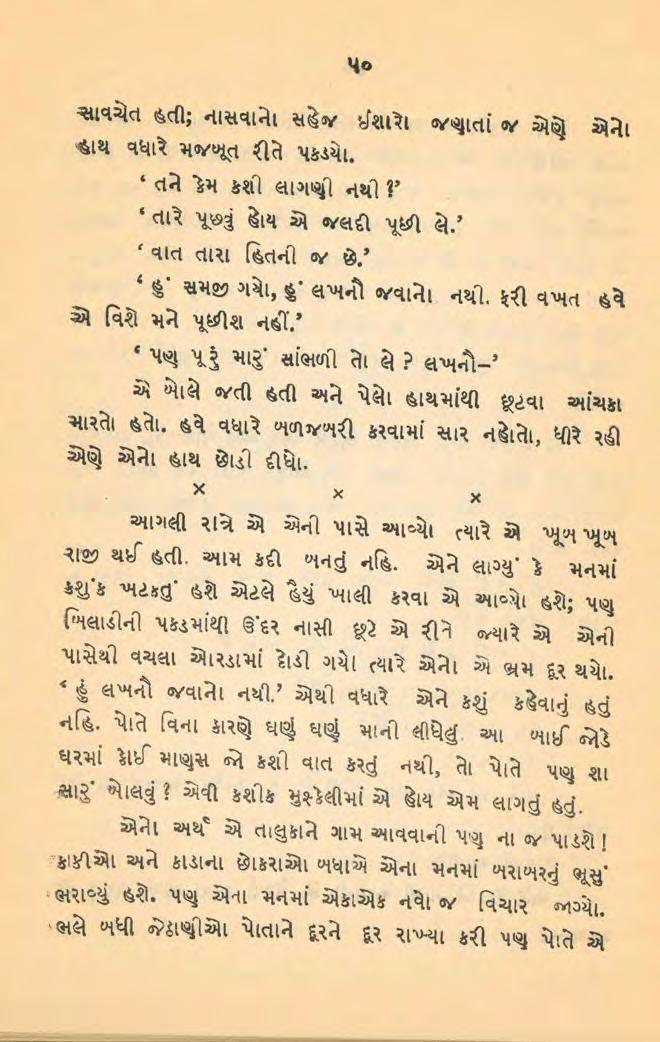 ૫૦
સાવચેત હતી; નાસવાનો સહેજ ઈશારો જણાતાં જ એણે એનો
હાથ વધારે મજબૂત રીતે પકડયો.
‘ તને કેમ કશી લાગણી નથી ?’
‘ તારે પૂછવું હોય એ જલદી પૂછી લે.’
‘ વાત તારા હિતની જ છે.’
‘ હું સમજી ગયો, હું લખનૌ જવાનો નથી. ફરી વખત હવે
એ વિશે મને પૂછીશ નહીં.’
‘ પણ પૂરું મારું સાંભળી તો લે ? લખનૌ–’
એ બોલે જતી હતી અને પેલો હાથમાંથી છૂટવા આંચકા
મારતો હતો. હવે વધારે બળજબરી કરવામાં સાર નહોતો, ધીરે રહી
એણે એનો હાથ છોડી દીધો.
× × ×
આગલી રાત્રે એ એની પાસે આવ્યો ત્યારે એ ખૂબ ખૂબ
રાજી થઈ હતી. આમ કદી બનતું નહિ. એને લાગ્યું કે મનમાં
કશુંક ખટકતું હશે એટલે હૈયું ખાલી કરવા એ આવ્યો હશે; પણ
બિલાડીની પકડમાંથી ઉંદર નાસી છૂટે એ રીતે જ્યારે એ એની
પાસેથી વચલા ઓરડામાં દોડી ગયો ત્યારે એનો એ ભ્રમ દૂર થયો.
‘ હું લખનૌ જવાનો નથી.’ એથી વધારે એને કશું કહેવાનું હતું
નહિ. પોતે વિના કારણે ઘણું ઘણું માની લીધેલું. આ બાઈ જોડે
ઘરમાં કોઈ માણસ જો કશી વાત કરતું નથી, તો પોતે પણ શા
સારું બોલવું ? એવી કશીક મુશ્કેલીમાં એ હોય એમ લાગતું હતું.
એનો અર્થ એ તાલુકાને ગામ આવવાની પણ ના જ પાડશે !
કાકીઓ અને કાકાના છોકરાઓ બધાએ એના મનમાં બરાબરનું ભૂસું
ભરાવ્યું હશે. પણ એના મનમાં એકાએક નવો જ વિચાર જાગ્યો.
ભલે બધી જેઠાણીઓ પોતાને દૂરને દૂર રાખ્યા કરી પણ પોતે એ